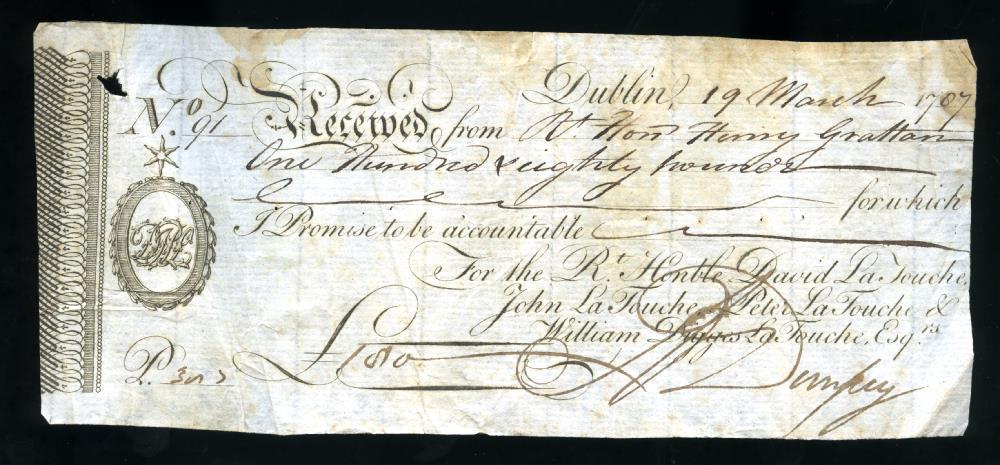 Dublin, 19 March 1787
No. 91 Received from Rt. Hon. Henry Grattan
One Hundred & eighty pounds
for which
I Promise to be accountable
For the Rt. Honble. David La Touche,
John La Touche, Peter La Touche &
William Digges La Touche, Esqrs.
£180
P.